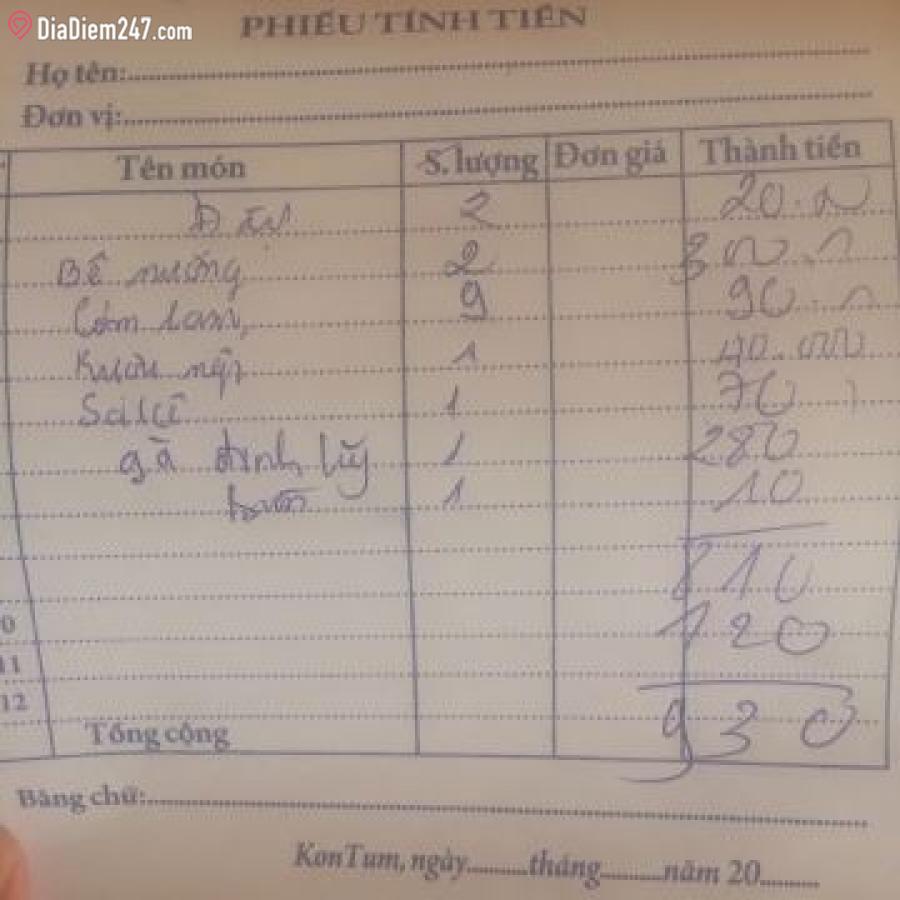 DiaDiem247.com
PHIẾU TÍNH TIỀN
Họ tên:
Đơn vị:
Tên món S. lượng Đơn giá Thành tiền
2 20.
Bê nướng 2 300
Cơm lam, 9 90
Rượu nếp 1 40.000
1 70
gà 1 280
1 10
810
120
10
11
12
930
Tổng cộng
Bằng chữ:
KonTum, ngày tháng năm 20